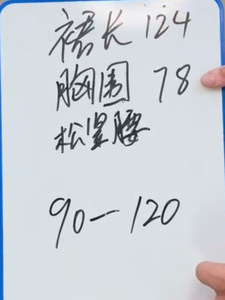 裙长 124
胸围 78
松紧腰
90-120